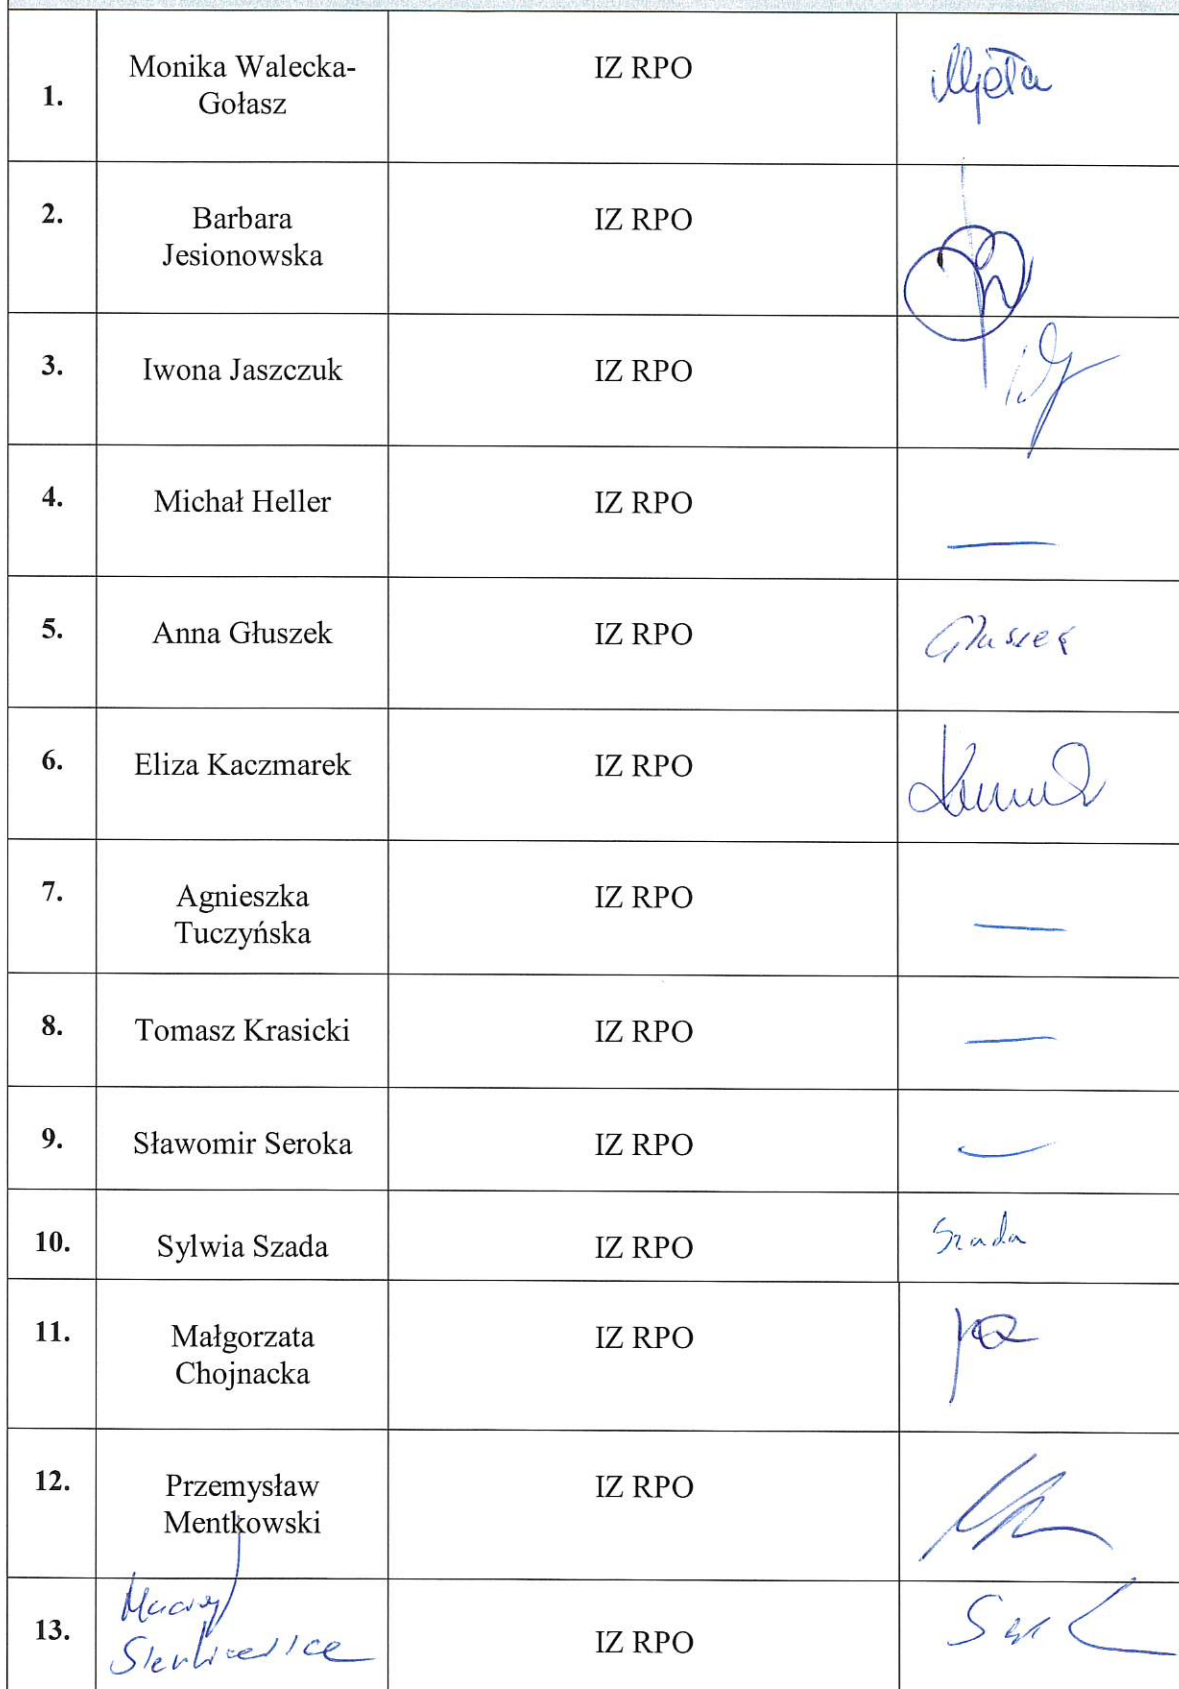 1. Monika Walecka- IZ RPO
Gołasz
2. Barbara IZ RPO
Jesionowska
3. Iwona Jaszczuk IZ RPO
4. Michał Heller IZ RPO —
5. Anna Głuszek IZ RPO Głuszek
6. Eliza Kaczmarek IZ RPO
7. Agnieszka IZ RPO —
Tuczyńska
8. Tomasz Krasicki IZ RPO —
9. Sławomir Seroka IZ RPO —
10. Sylwia Szada IZ RPO Szada
11. Małgorzata IZ RPO
Chojnacka
12. Przemysław IZ RPO
Mentkowski
Maciej
13. IZ RPO